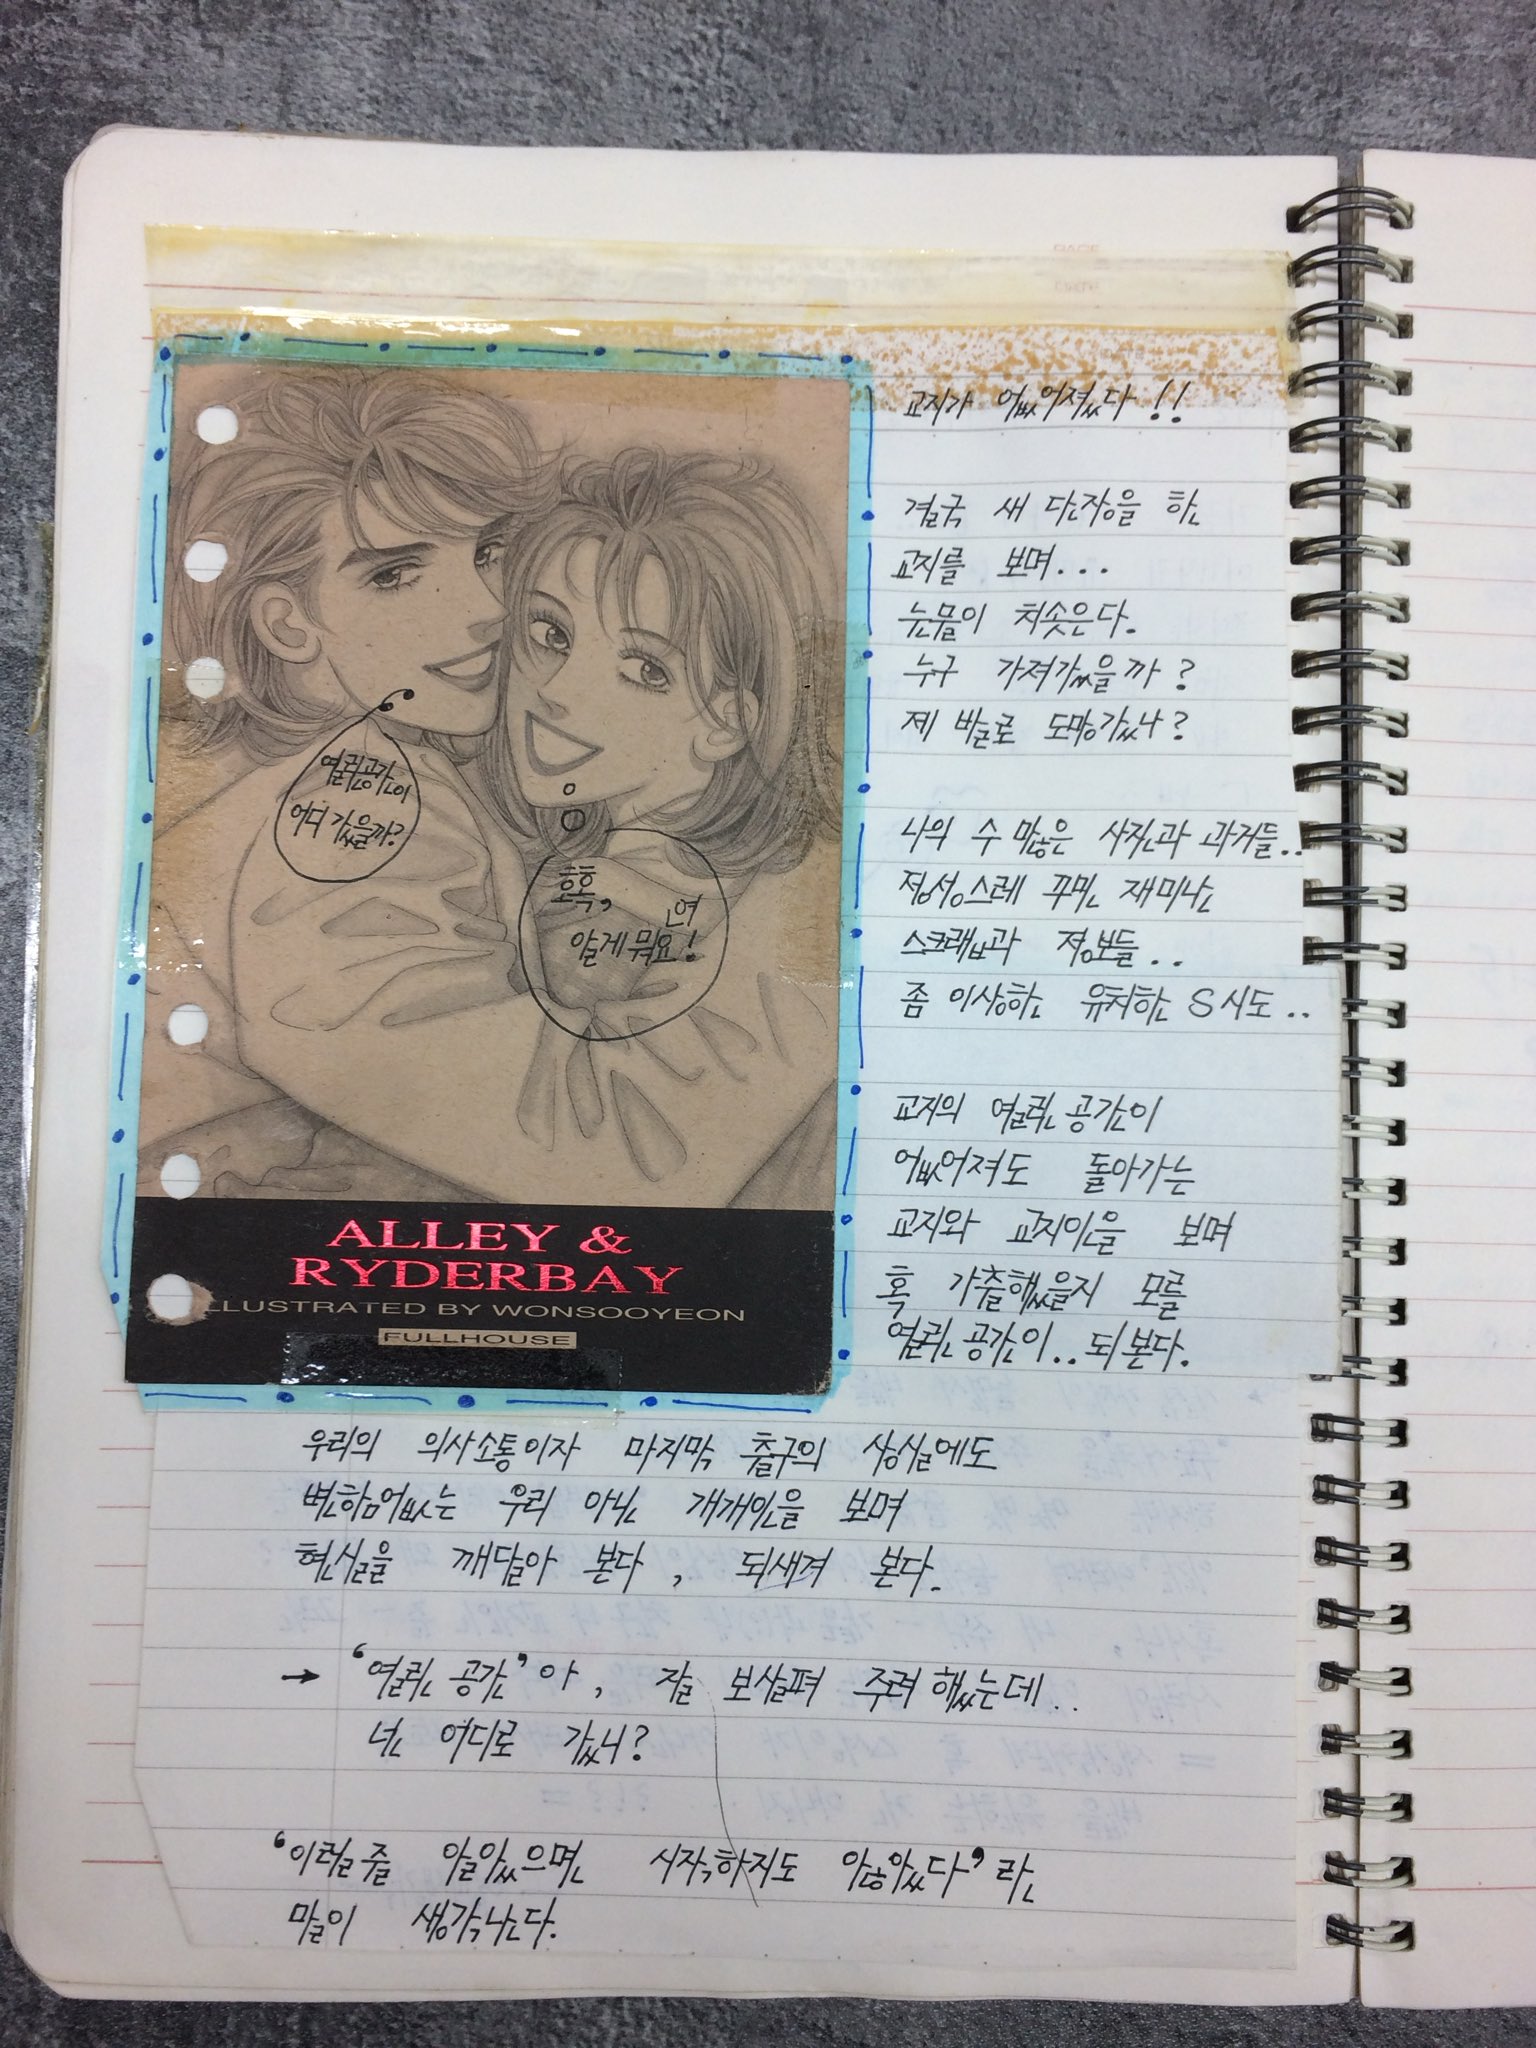 교지가 없어졌다!!
결국 새 단장을 한
교지를 보며...
눈물이 치솟은다.
누구 가져갔을까?
제 발로 도망갔나?
나의 수 많은 사진과 과거들..
정성스레 꾸민 재미난
스크랩과 정보들..
좀 이상한 유치한 S시도..
교지의 열린공간이
없어져도 돌아가는
교지와 교지인을 보며
혹 가출했을지 모를
열린공간이..되본다.
열린공간이
어디 갔을까?
흑흑, 연
알게뭐요!
ALLEY &
RYDERBAY
ILLUSTRATED BY WONSOOYEON
FULLHOUSE
우리의 의사소통이자 마지막 출구의 상실에도
변함없는 우리 아닌 개개인을 보며
현실을 깨달아 본다, 되새겨 본다.
→ '열린 공간'아, 잘 보살펴 주려 했는데..
넌 어디로 갔니?
'이럴줄 알았으면 시작하지도 않았다'란
말이 생각난다.